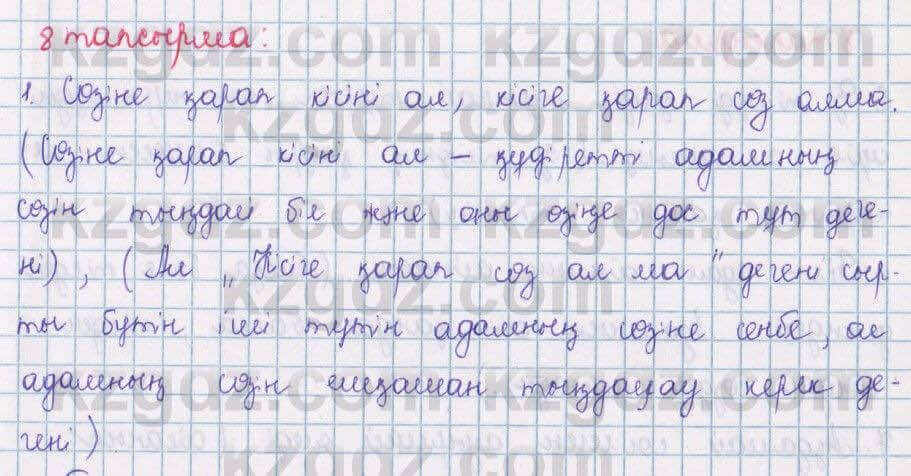 8 тапсырма:
1. Сөзіне қарап кісіні ал, кісіге қарап сөз алма.
(Сөзіне қарап кісіні ал – құдіретті адамның
сөзін тыңдай біл және оны өзіңе дос тұт деге-
ні), (Ал „Кісіге қарап сөз ал ма" дегені сыр-
ты бүтін іші түтін адамның сөзіне сенбе, ал
адамның сөзін ешқашан тыңдамау керек де-
гені)
kzgdz.com